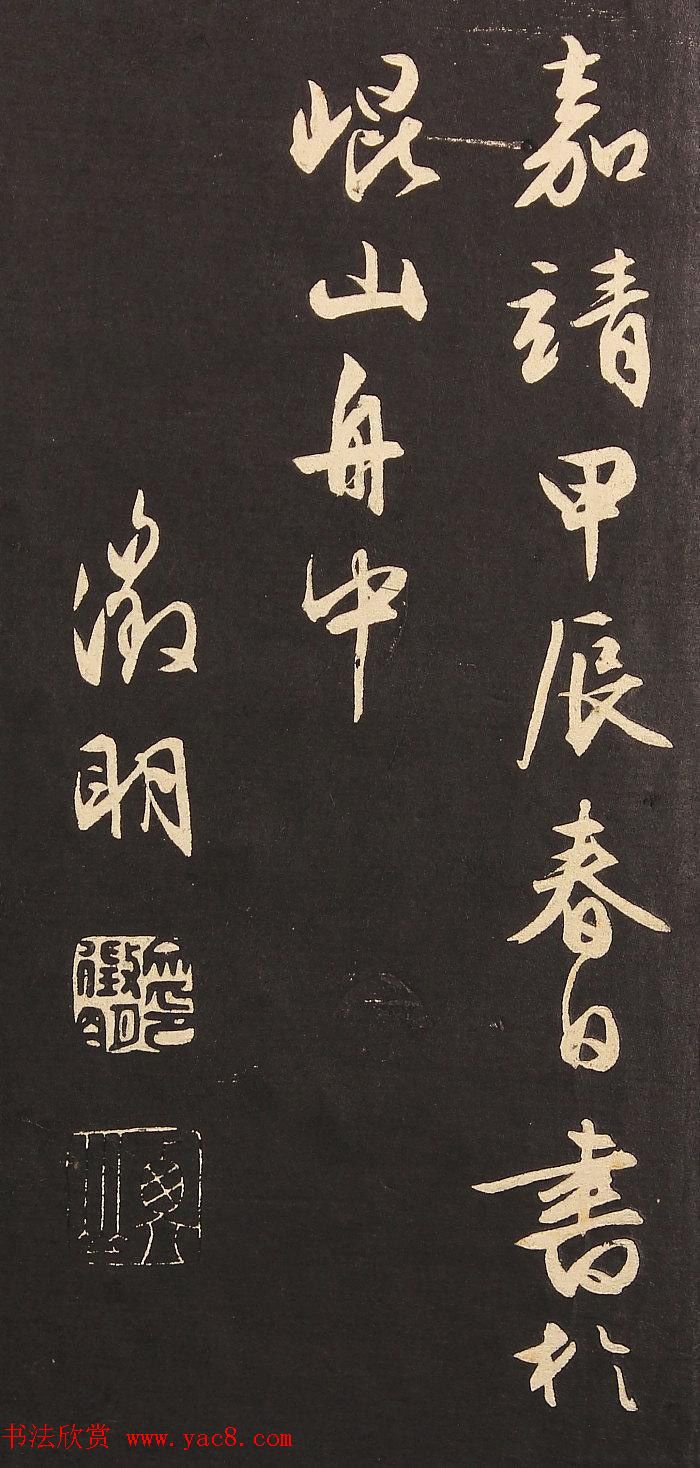 嘉靖甲辰春日書於
崐山舟中
徵明
徵明
書法欣赏 www.yac8.com